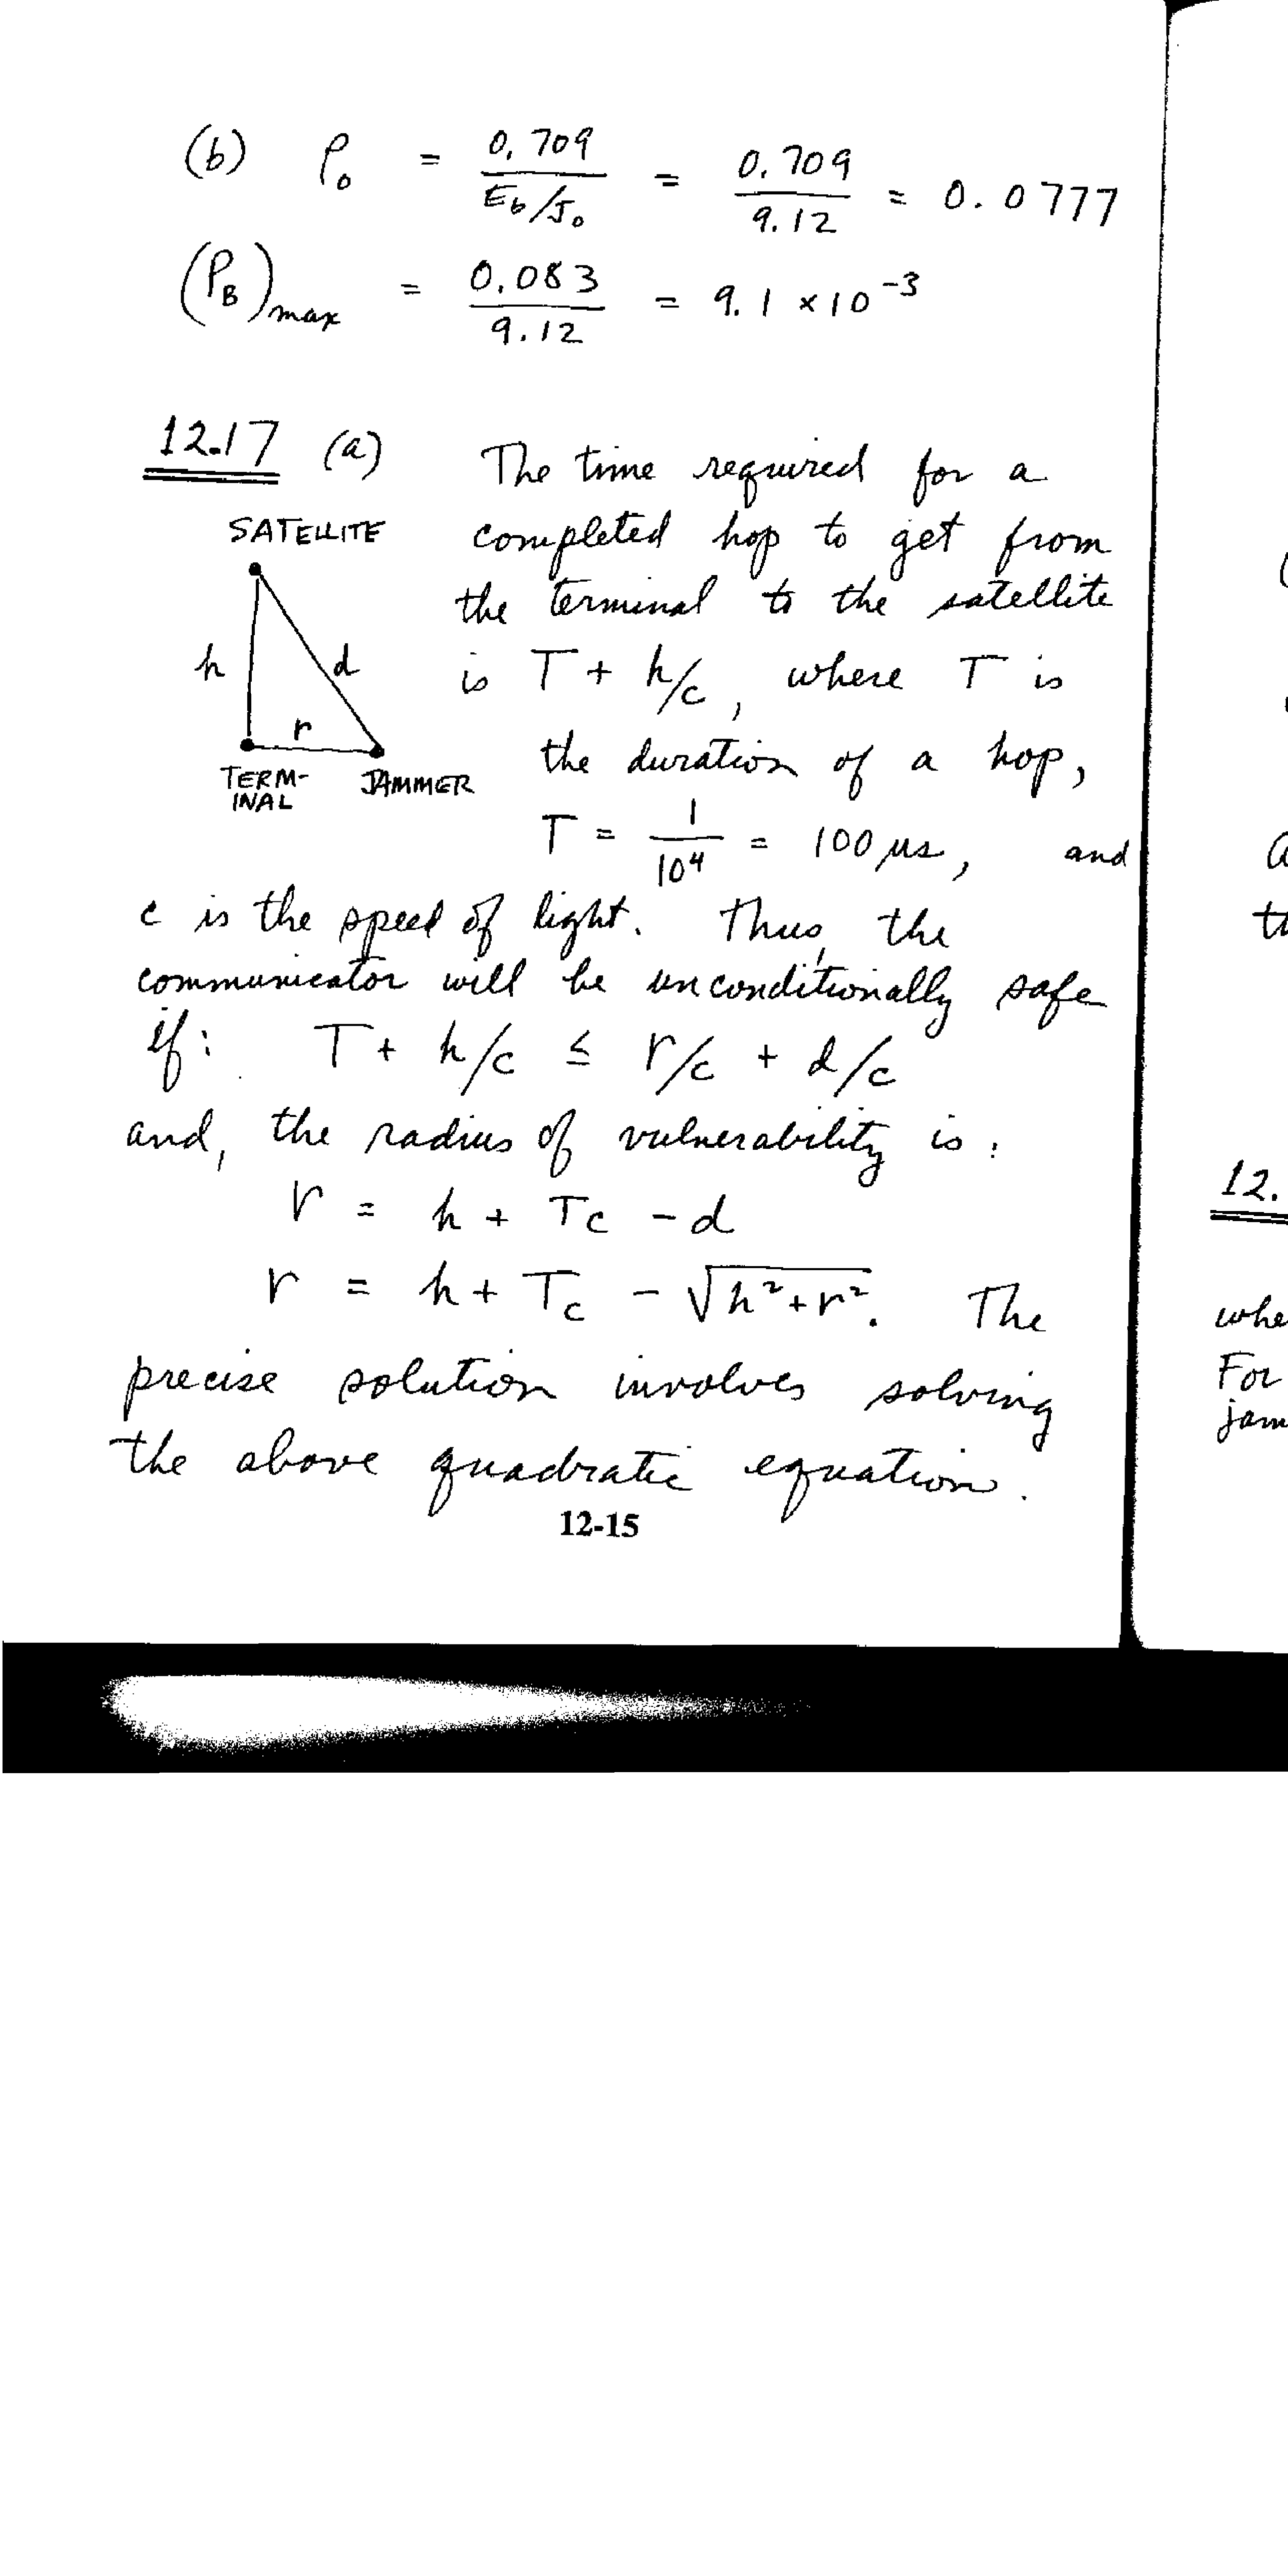 (b) ρ₀ = 0.709 / (E_b/J₀) = 0.709 / 9.12 = 0.0777
(P_B)max = 0.083 / 9.12 = 9.1 × 10⁻³
12.17 (a) The time required for a
SATELLITE
completed hop to get from
the terminal to the satellite
h d
is T + h/c, where T is
r
TERM-
INAL
JAMMER
the duration of a hop,
T = 1 / 10⁴ = 100 μs, and
c is the speed of light. Thus, the
communicator will be unconditionally safe
if: T + h/c ≤ r/c + d/c
and, the radius of vulnerability is:
r = h + Tc - d
r = h + Tc - √(h²+r²). The
precise solution involves solving
the above quadratic equation.
12-15
12.
whe
For
jam